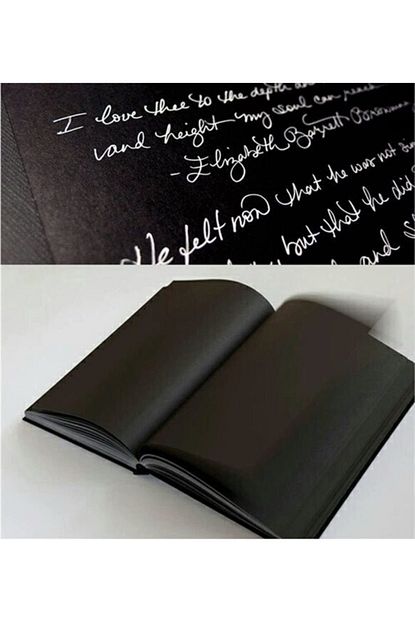 I love thee to the depth
vand height my soul can reach
- Elizabeth Barrett Browning
He felt now that he was not
but that he did
and